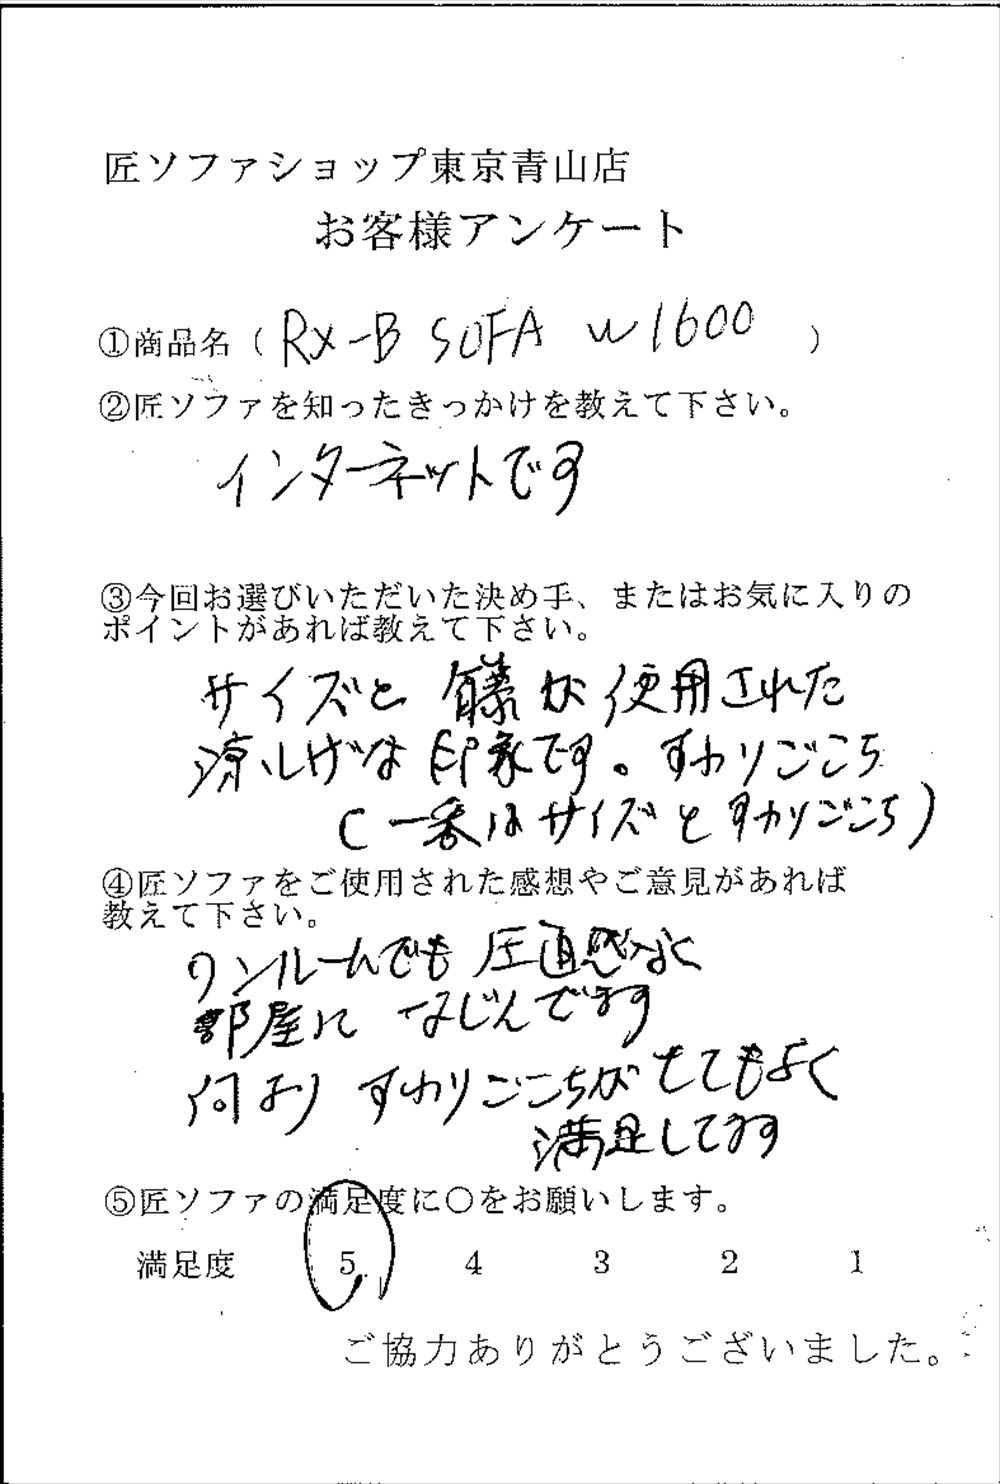 匠ソファショップ東京青山店
お客様アンケート
①商品名（ RX-B SOFA W1600 ）
②匠ソファを知ったきっかけを教えて下さい。
インターネットです
③今回お選びいただいた決め手、またはお気に入りの
ポイントがあれば教えて下さい。
サイズと 籐が使用された
涼しげな印象です。すわりごこち
(一番はサイズとすわりごこち)
④匠ソファをご使用された感想やご意見があれば
教えて下さい。
ワンルームでも圧迫感なく
部屋に なじんでます
何より すわりごこちがとてもよく
満足してます
⑤匠ソファの満足度に〇をお願いします。
満足度 5 4 3 2 1
ご協力ありがとうございました。